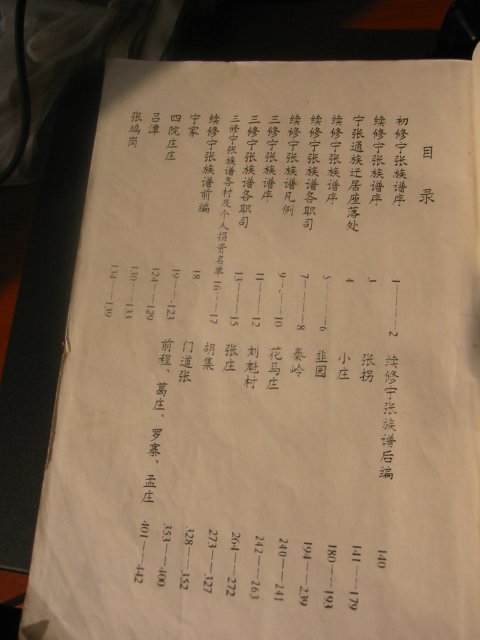 目录
初修宁张族谱序 1——2
续修宁张族谱序 3
宁张通族迁居座落处 4
续修宁张族谱序 5——6
续修宁张族谱各职司 7——8
续修宁张族谱凡例 9——10
三修宁张族谱序 11——12
三修宁张族谱各职司 13——15
三修宁张族谱各村及个人捐资名单 16——17
续修宁张族谱前编 18
宁家 19——123
四院庄庄 124——129
吕潭 130——133
张坞岗 134——139
续修宁张族谱后编 140
张拐 141——179
小庄 180——193
韭园 194——239
秦岭 240——241
花马庄 242——263
刘魁村 264——272
张庄 273——327
胡集 328——352
门道张 353——400
前程、葛庄、罗寨、孟庄 401——442